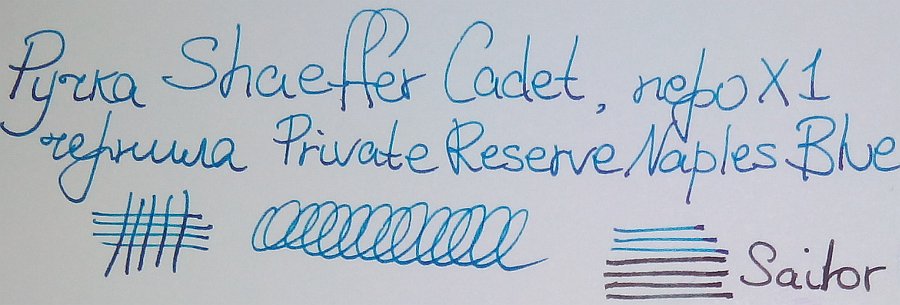 Ручка Shaeffer Cadet, перо X1
чернила Private Reserve Naples Blue
Sailor